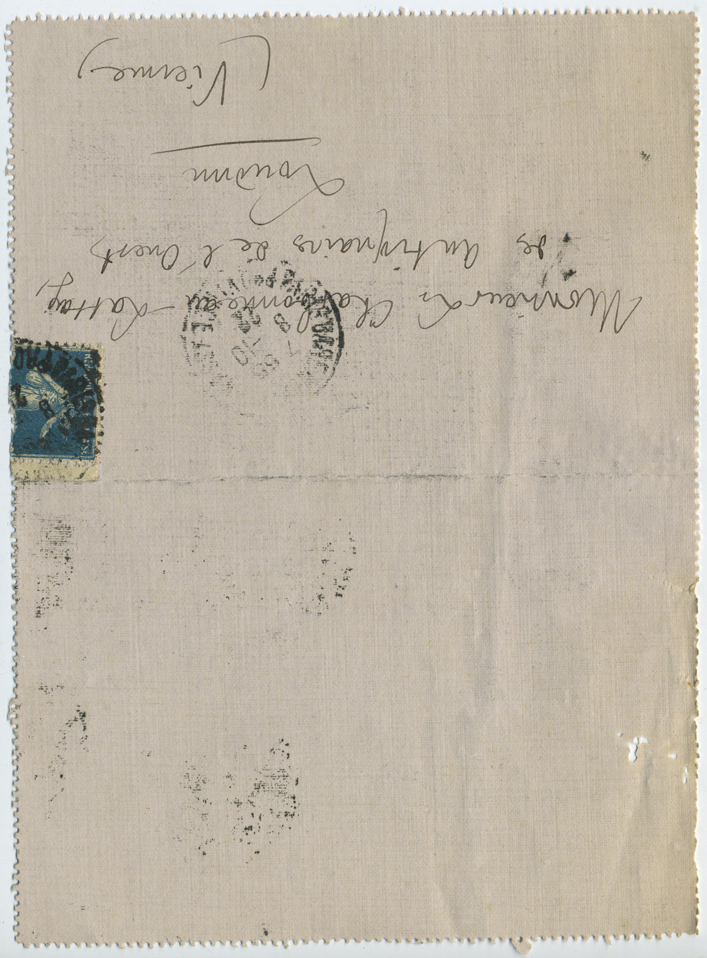 Monsieur Charbonneau-Lassay
des Antiquaires de l'Ouest
Loudun
(Vienne)